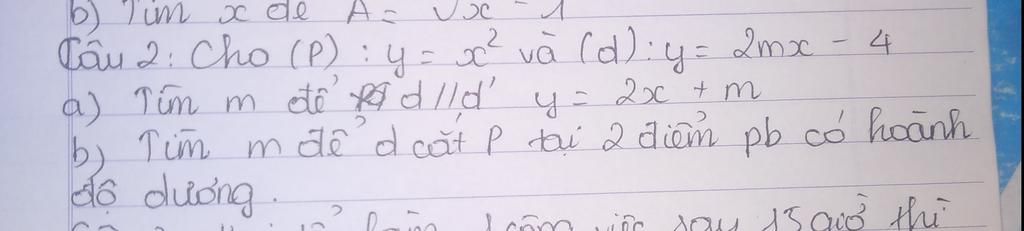 b) Tìm x để A = √x - 1
Câu 2: Cho (P) : y = x² và (d) : y = 2mx - 4
a) Tìm m để d // d' y = 2x + m
b) Tìm m để d cắt P tại 2 điểm pb có hoành
độ dương.
15 giờ thì